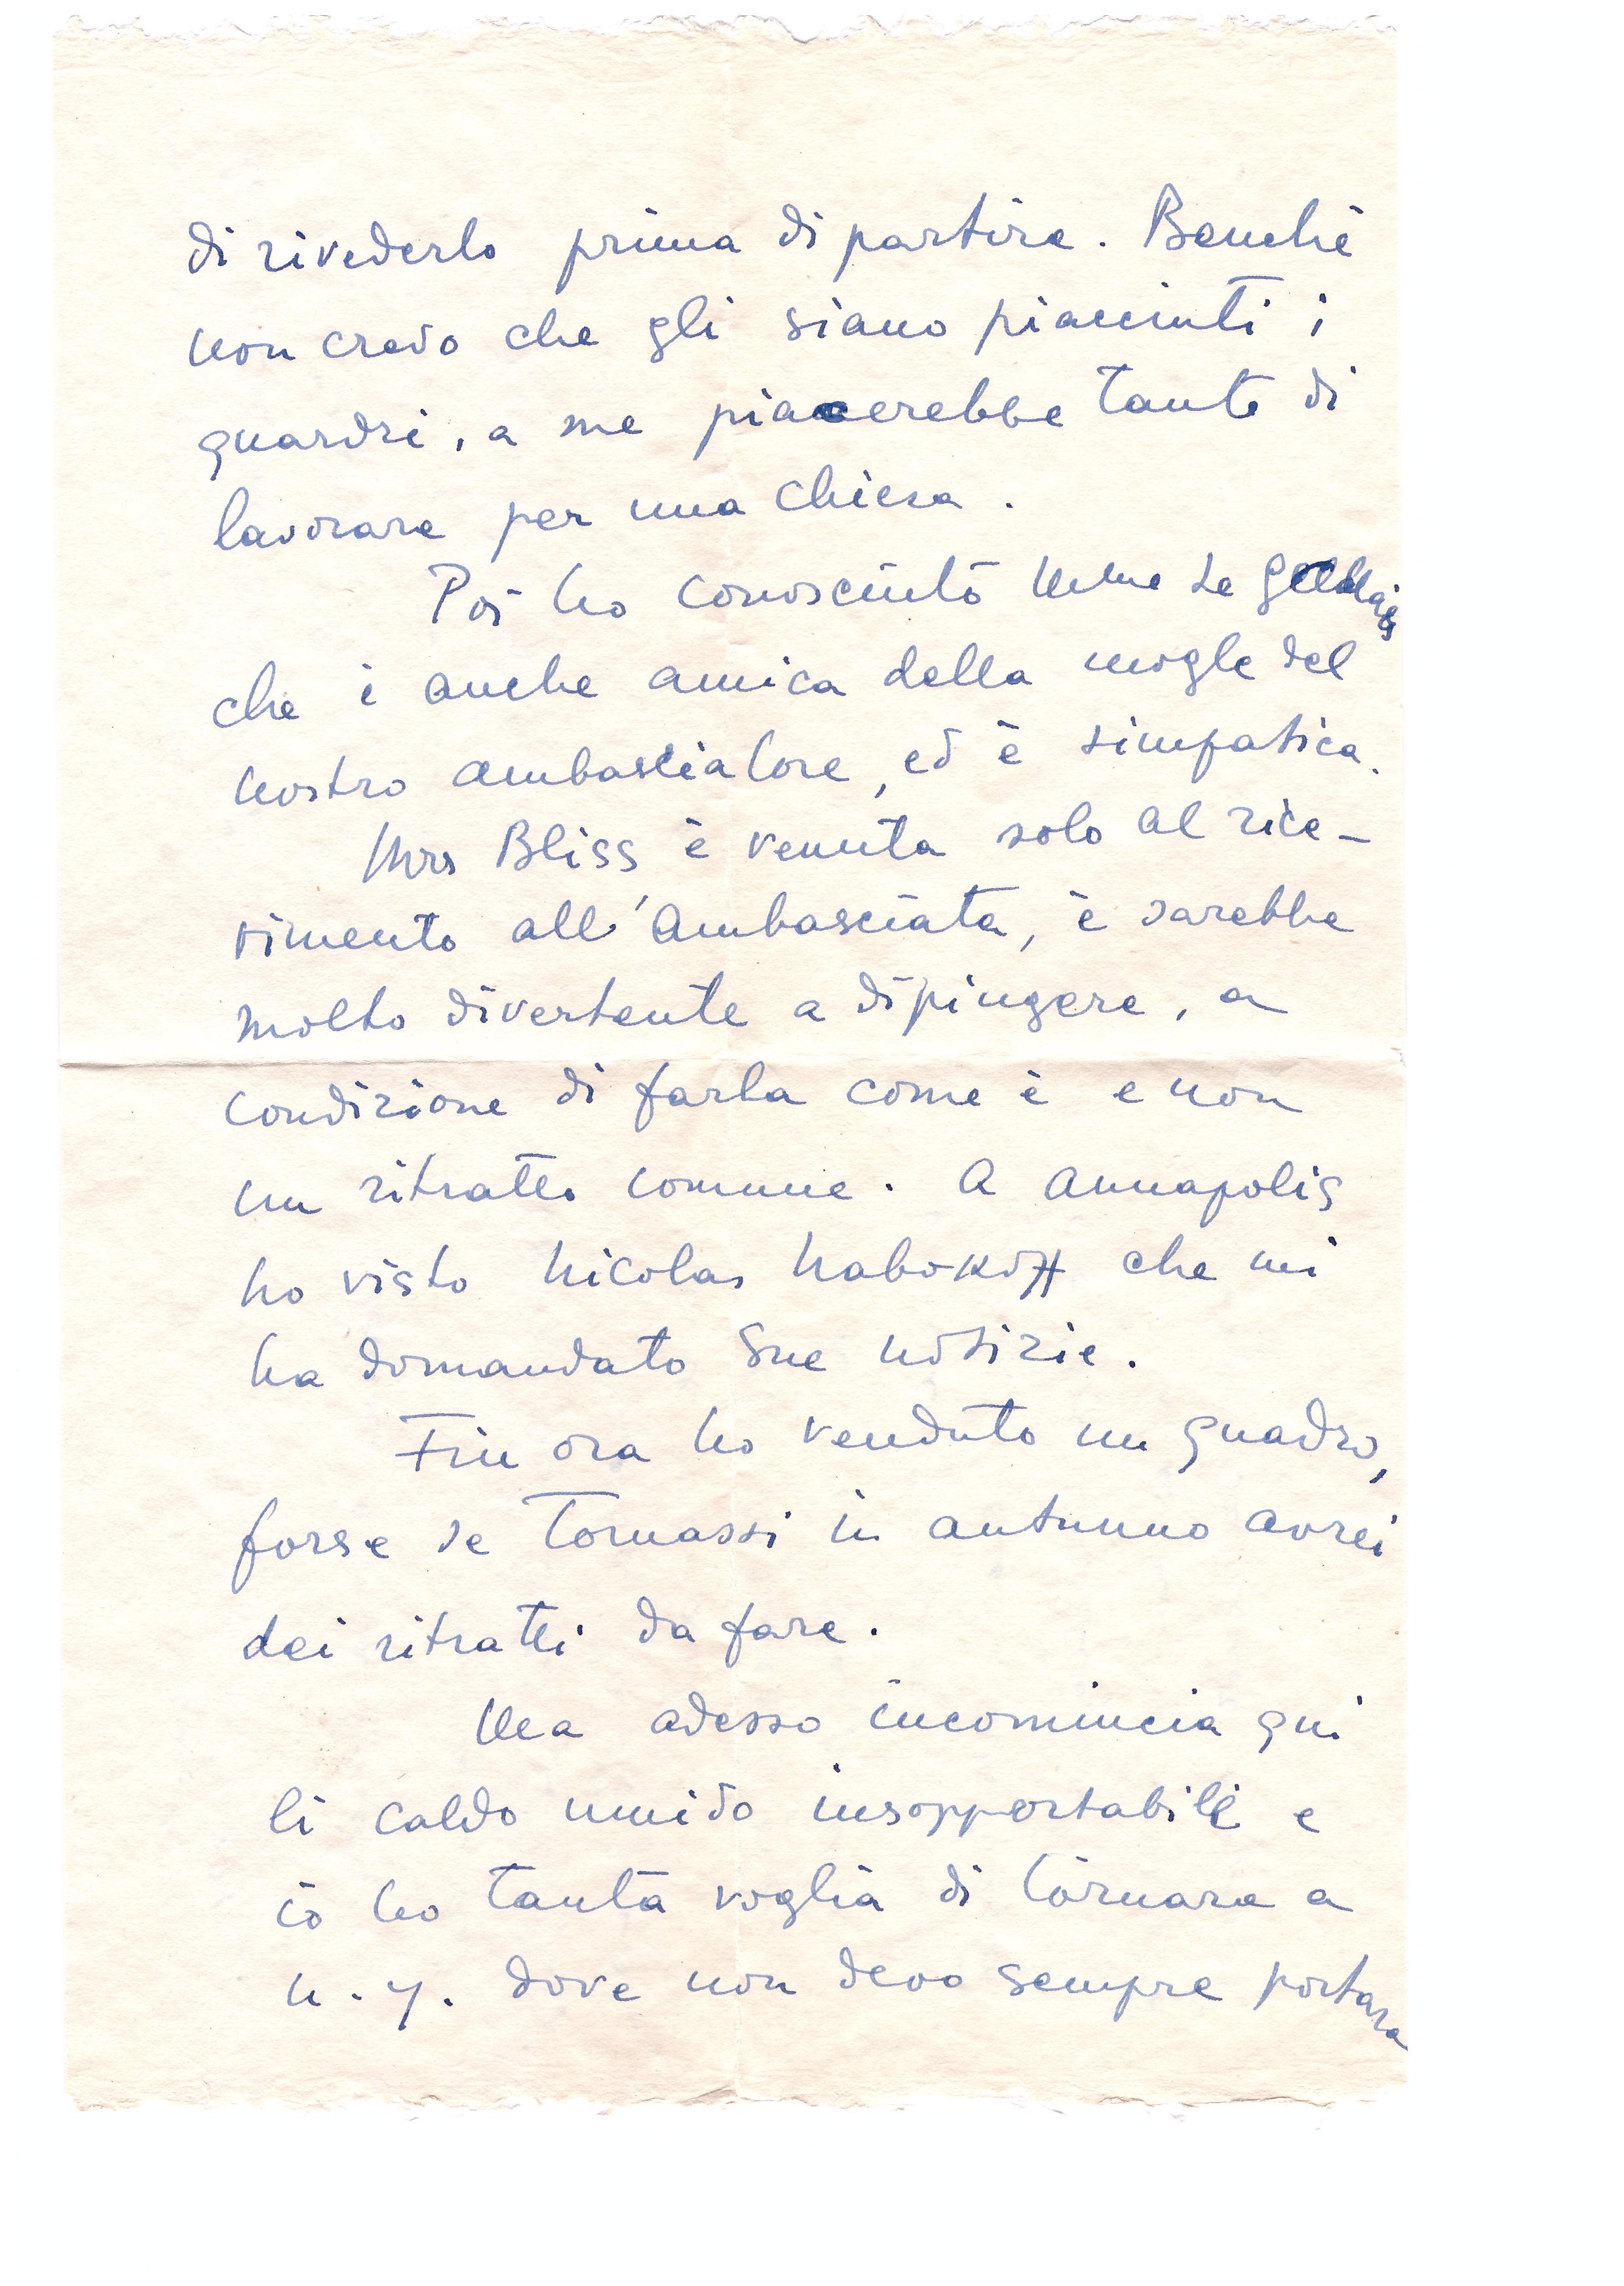 di rivederlo prima di partire. Benchè
non credo che gli siano piacciuti i
quardri, a me piacerebbe tanto di
lavorare per una chiesa.
Poi ho conosciuto Mme Le
che è anche amica della mogle del
nostro ambasciatore, ed è simpatica.
Mrs Bliss è venuta solo al rice-
vimento all'Ambasciata, è sarebbe
molto divertente a dipingere, a
condizione di farla come è e non
un ritratto comune. A Annapolis
ho visto Nicolas Nabokoff che mi
ha domandato Sue notizie.
Fin ora ho venduto un quadro,
forse se tornassi in autunno avrei
dei ritratti da fare.
Ma adesso incomincia qui
li caldo umido insopportabile e
io ho tanta voglia di tornare a
N.Y. dove non devo sempre portare